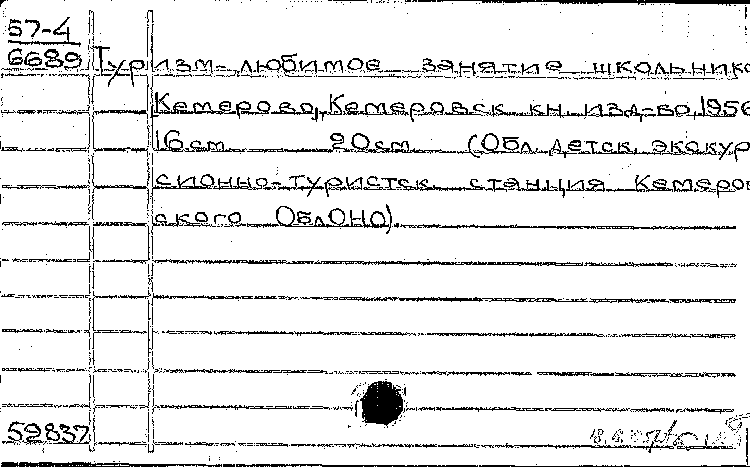 57-4
6689 Туризм-любимое занятие школьнико
Кемерово, Кемеровск кн. изд-во, 1956
16см 20см (Обл. детск. экскур
сионно-туристск станция Кемеров
ского ОблОНО).
59837